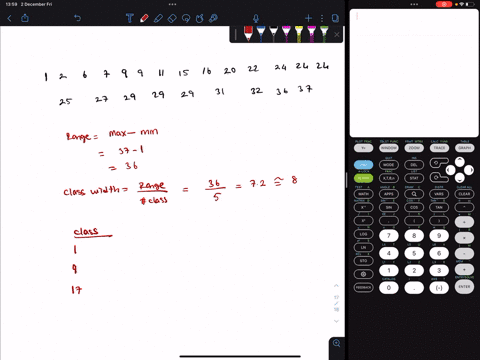 13:59 2 December Fri
1 2 6 7 9 9 11 15 16 20 22 24 24 24
25 27 29 29 29 31 32 36 37
Range = max - min
= 37-1
= 36
Class width = Range / # class = 36 / 5 = 7.2 ≅ 8
class
1
9
17
WINDOW ZOOM TRACE GRAPH
MODE DEL
MATH APPS CLEAR
SIN COS TAN
LOG 7 8 9
LN 4 5 6
STO 1 2 3
FEEDBACK 0 . (-) ENTER